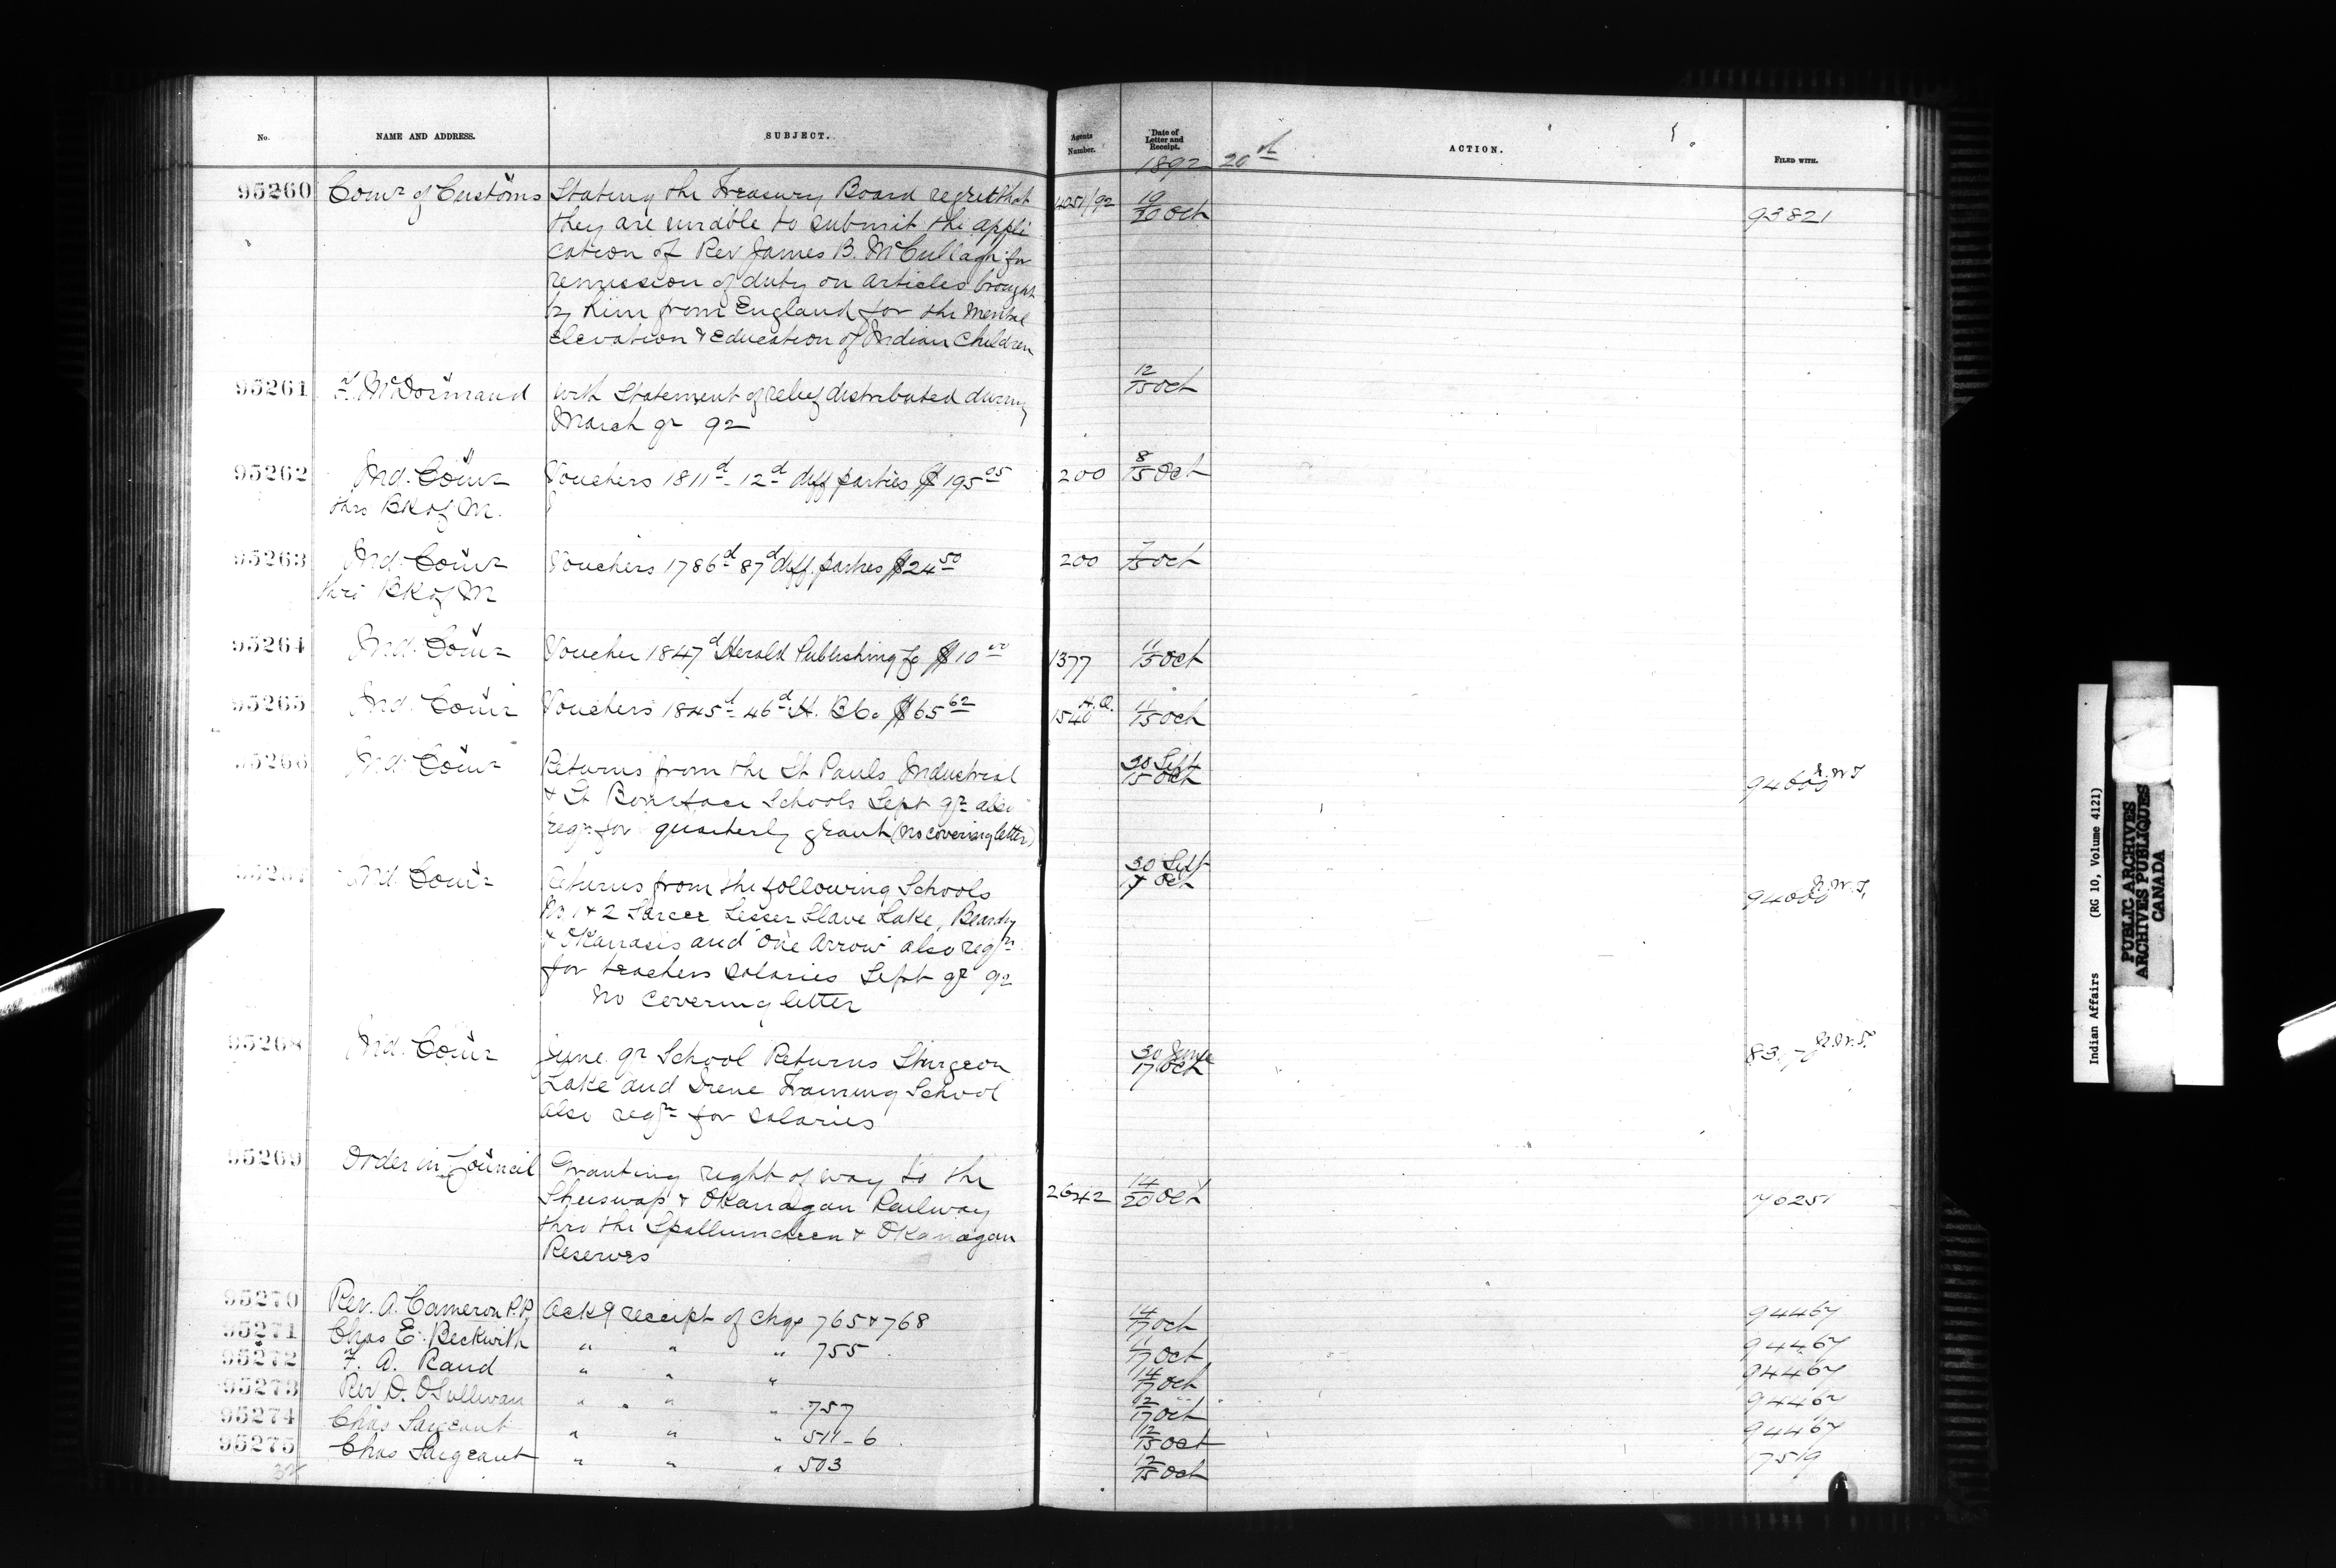 No.
NAME AND ADDRESS.
SUBJECT.
Agents Number.
Date of Letter and Receipt.
ACTION.
FILED WITH.
1892 20th
95260 Comr of Customs Stating the Treasury Board regret that 4051/92 19/20 Oct 93821
they are unable to submit the appli
cation of Rev James B. McCullagh for
remission of duty on articles brought
by him from England for the mental
elevation & education of Indian children
95261 F. McDormand with Statement of relief distributed during 12/15 Oct
March qr 92
95262 Ind. Comr Vouchers 1811d - 12d diff parties $195.05 200 8/15 Oct
thro BK of M.
95263 Ind. Comr Vouchers 1786d 87d diff. parties $24.50 200 7/15 Oct
thro BK of M
95264 Ind. Comr Voucher 1847d Herald Publishing Co $10.00 1377 11/15 Oct
95265 Ind. Comr Vouchers 1845d - 46d H. B Co $65.62 H.Q. 1540 11/15 Oct
95266 Ind. Comr Returns from the St Pauls Industrial 30 Sept 15 Oct N.W.T.
& St Boniface Schools Sept qr also
reqn for quarterly grant (no covering letter)
95267 Ind. Comr Returns from the following Schools 30 Sept 17 Oct N.W.T.
No 1 & 2 Sarcee Lesser Slave Lake, Beardy
& Okanasis and One Arrow also reqn
for teachers salaries Sept qr 92
No covering letter
95268 Ind. Comr June qr School Returns Sturgeon 30 June 17 Oct N.W.T.
Lake and Irene Training School
also reqn for salaries
95269 Order in Council Granting right of way to the
Shuswap & Okanagan Railway 2642 14/20 Oct
thro the Spallumcheen & Okanagan
Reserves
95270 Rev. A. Cameron P.P. Ackg receipt of chqs 765 & 768 14/17 Oct 94467
95271 Chas E. Beckwith " " " 755 17 Oct 94467
95272 F. A. Rand " " " 14/17 Oct 94467
95273 Rev D. OSullivan " " " 757 12/17 Oct 94467
95274 Chas Sargeant " " " 511-6 12/15 Oct 94467
95275 Chas Sargeant " " " 503 12/15 Oct 17519
Indian Affairs (RG 10, Volume 4121)
PUBLIC ARCHIVES
ARCHIVES PUBLIQUES
CANADA